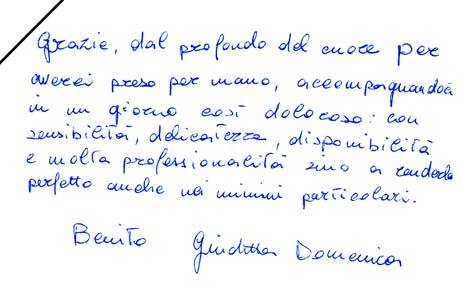 Grazie, dal profondo del cuore per
averci preso per mano, accompagnandoci
in un giorno così doloroso: con
sensibilità, delicatezza, disponibilità
e molta professionalità sino a renderlo
perfetto anche nei minimi particolari.
Benito Giuditta Domenica